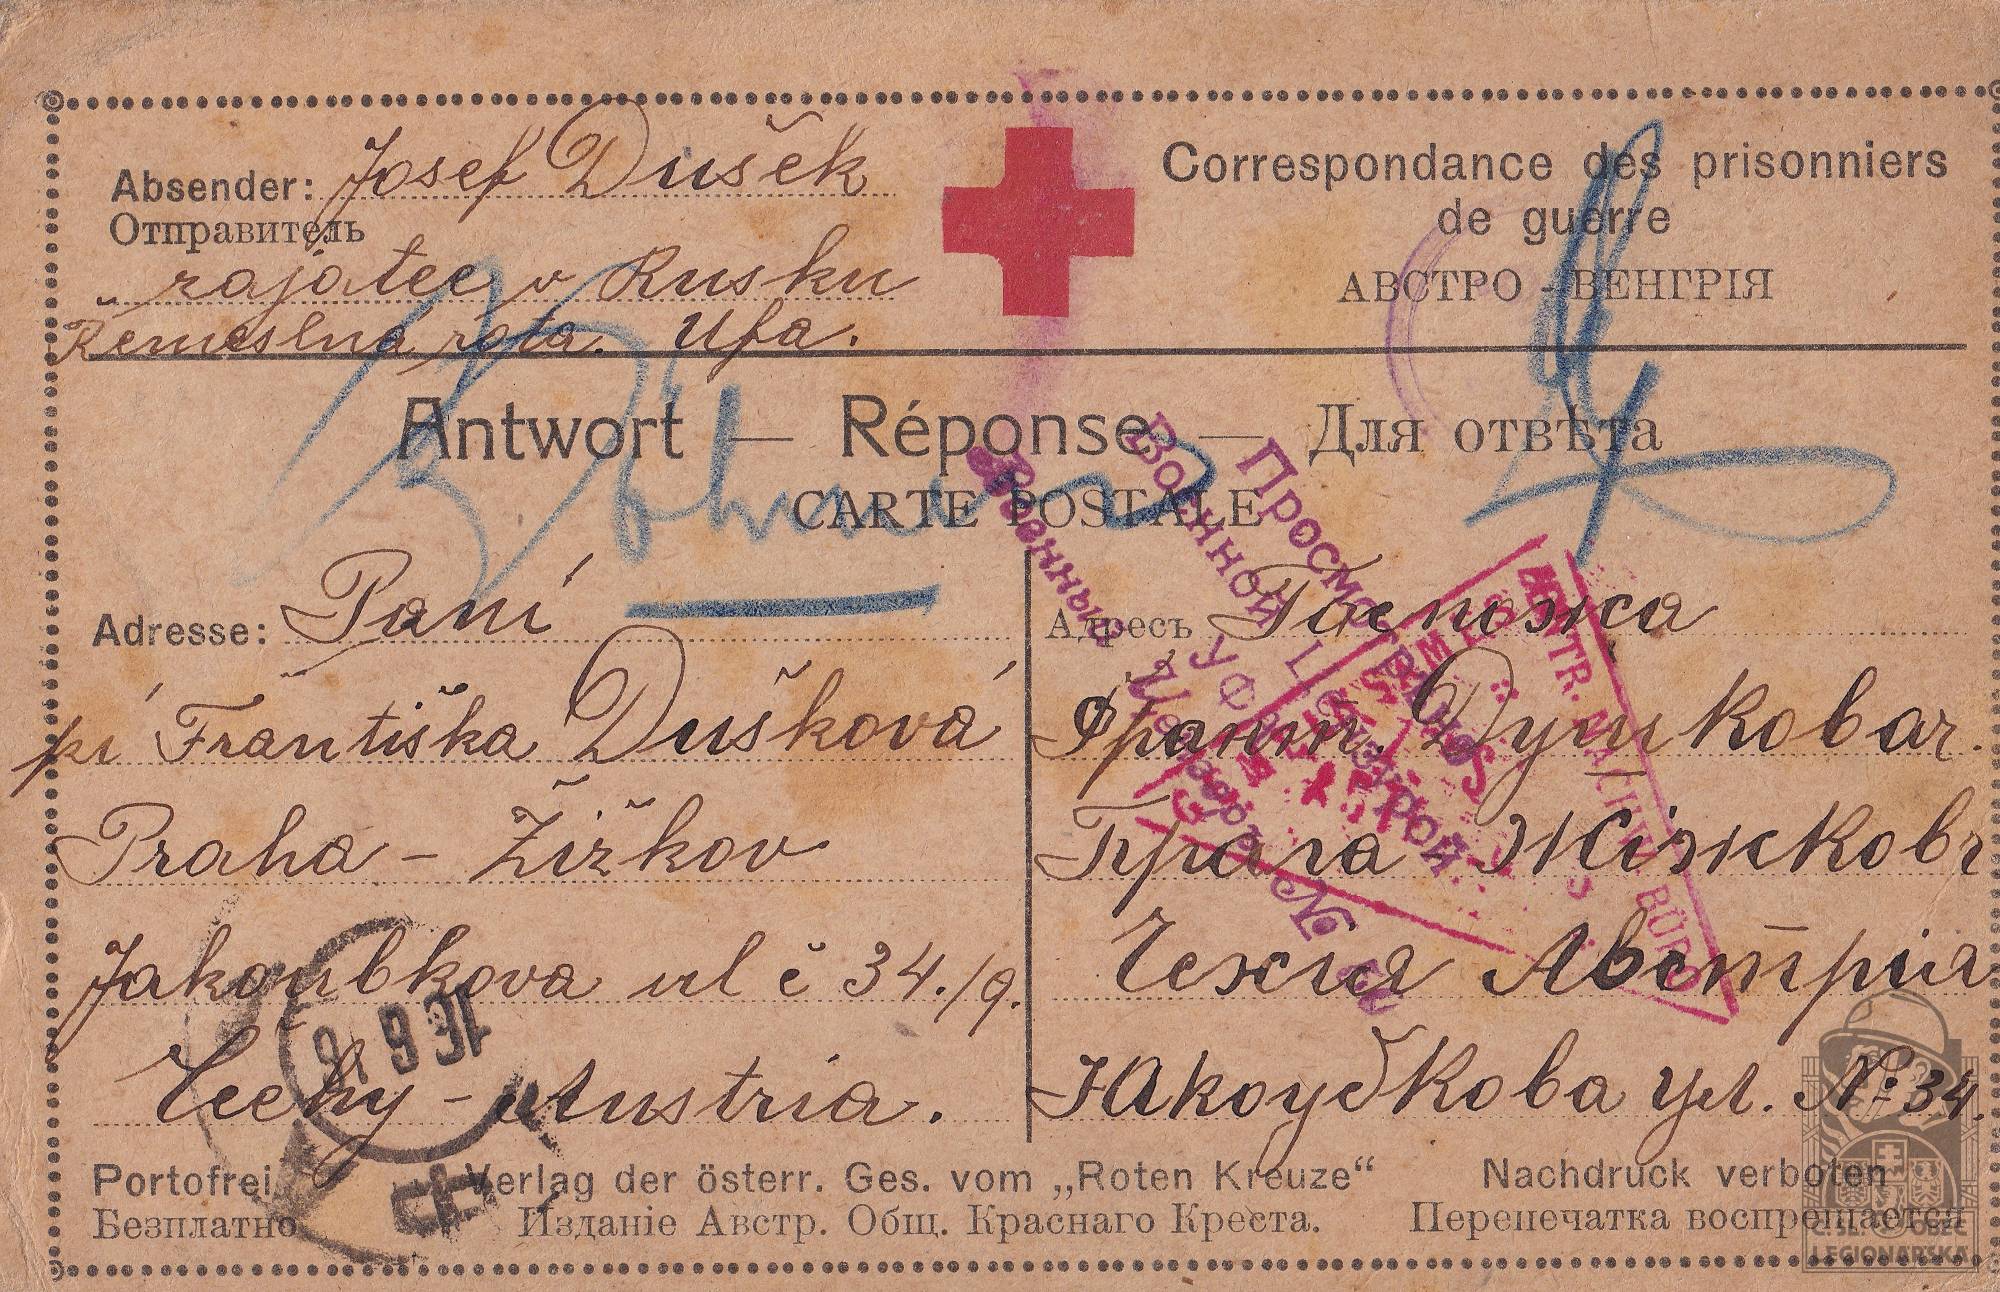 Absender: Josef Dušek
Correspondance des prisonniers
Отправитель
de guerre
zajatec v Rusku
АВСТРО - ВЕНГРІЯ
Řemeslná rota. Ufa.
Antwort — Réponse — Для отвѣта
CARTE POSTALE
Böhmen
Просмотрѣно
Военной Цензурой
Уфа
Военный Цензоръ №
Adresse: Paní
pí Františka Dušková
Praha - Žižkov
Jakoubkova ul č 34./9.
Čechy - Austria.
Адресъ Госпожа
Франт. Душковаг.
Прага Жіжковъ
Чехия Австрія
Якоубкова ул. №: 34.
Portofrei
Verlag der österr. Ges. vom „Roten Kreuze“
Nachdruck verboten
Безплатно
Изданіе Австр. Общ. Краснаго Креста.
Перепечатка воспрещается
Č. SL. OBEC
LEGIONÁŘSKÁ